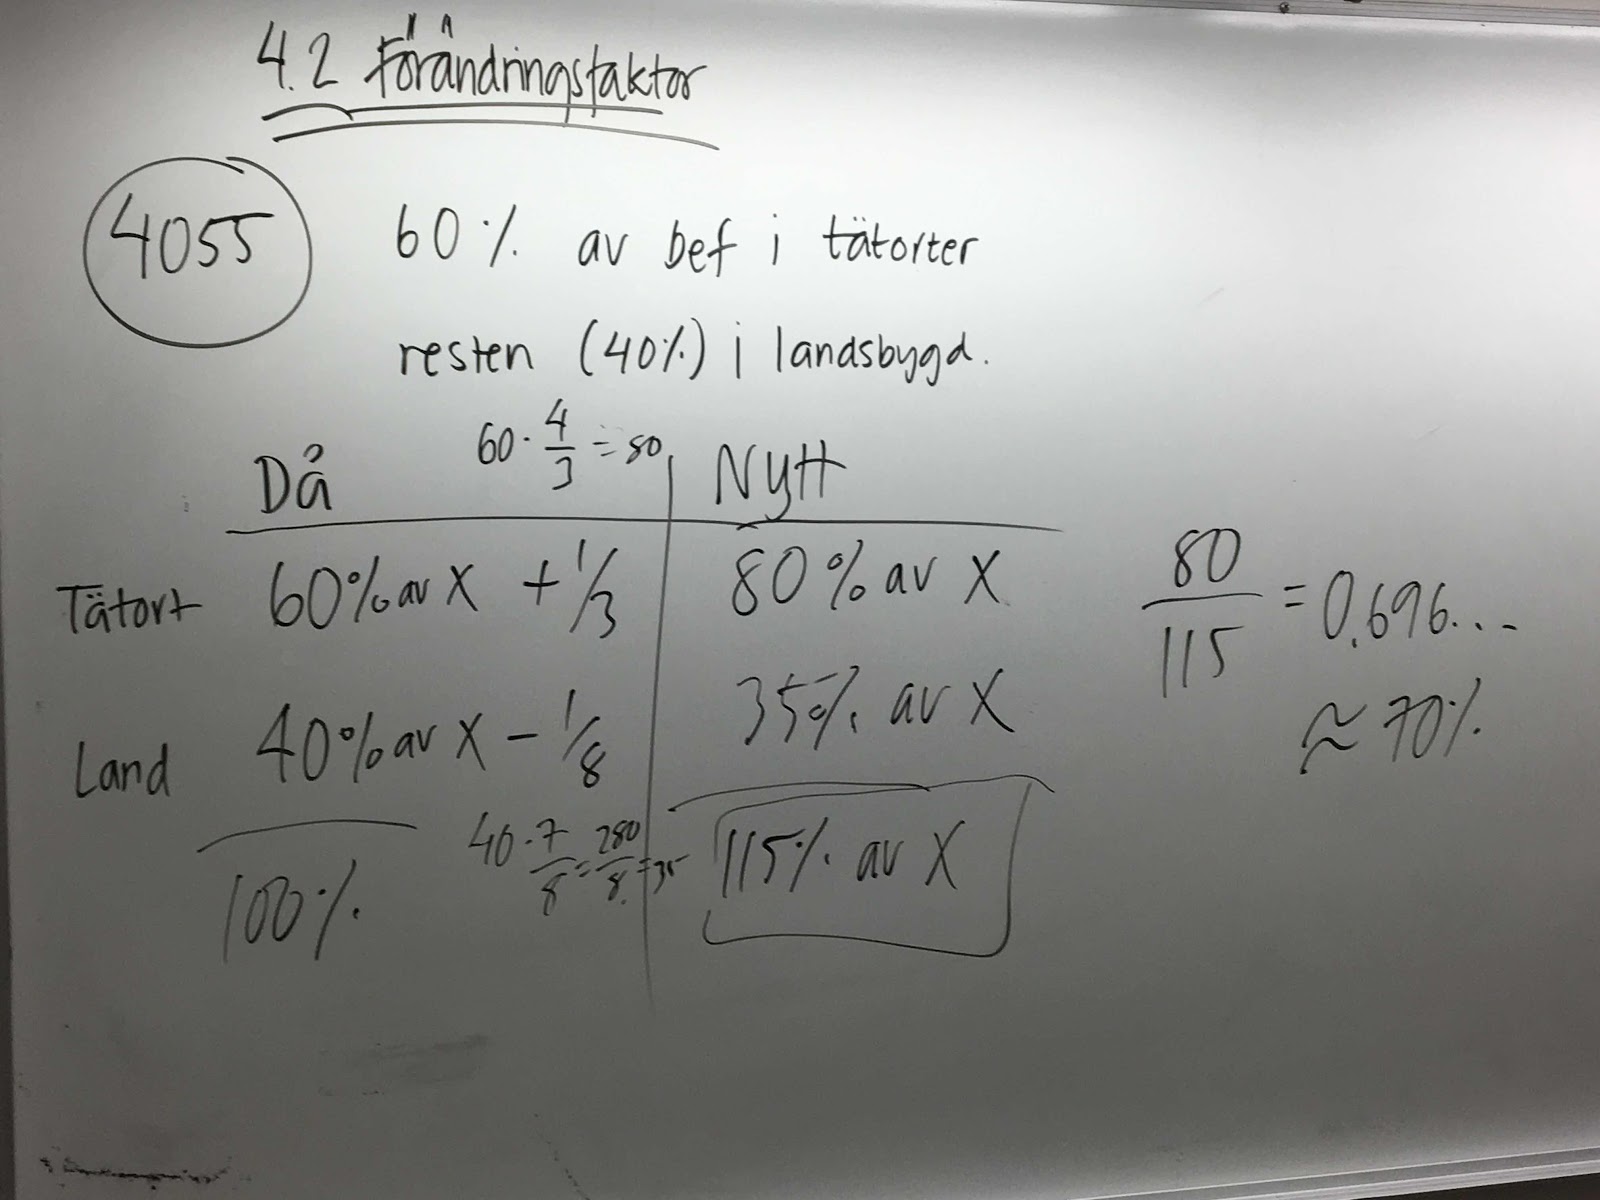 4.2 Förändringsfaktor
4055
60 % av bef i tätorter
resten (40%) i landsbygd.
60 · 4/3 = 80
Då Nytt
Tätort 60% av X + 1/3 80% av X
Land 40% av X - 1/8 35% av X
40 · 7/8 = 280/8 = 35
100% 115% av X
80/115 = 0,696...
≈ 70%